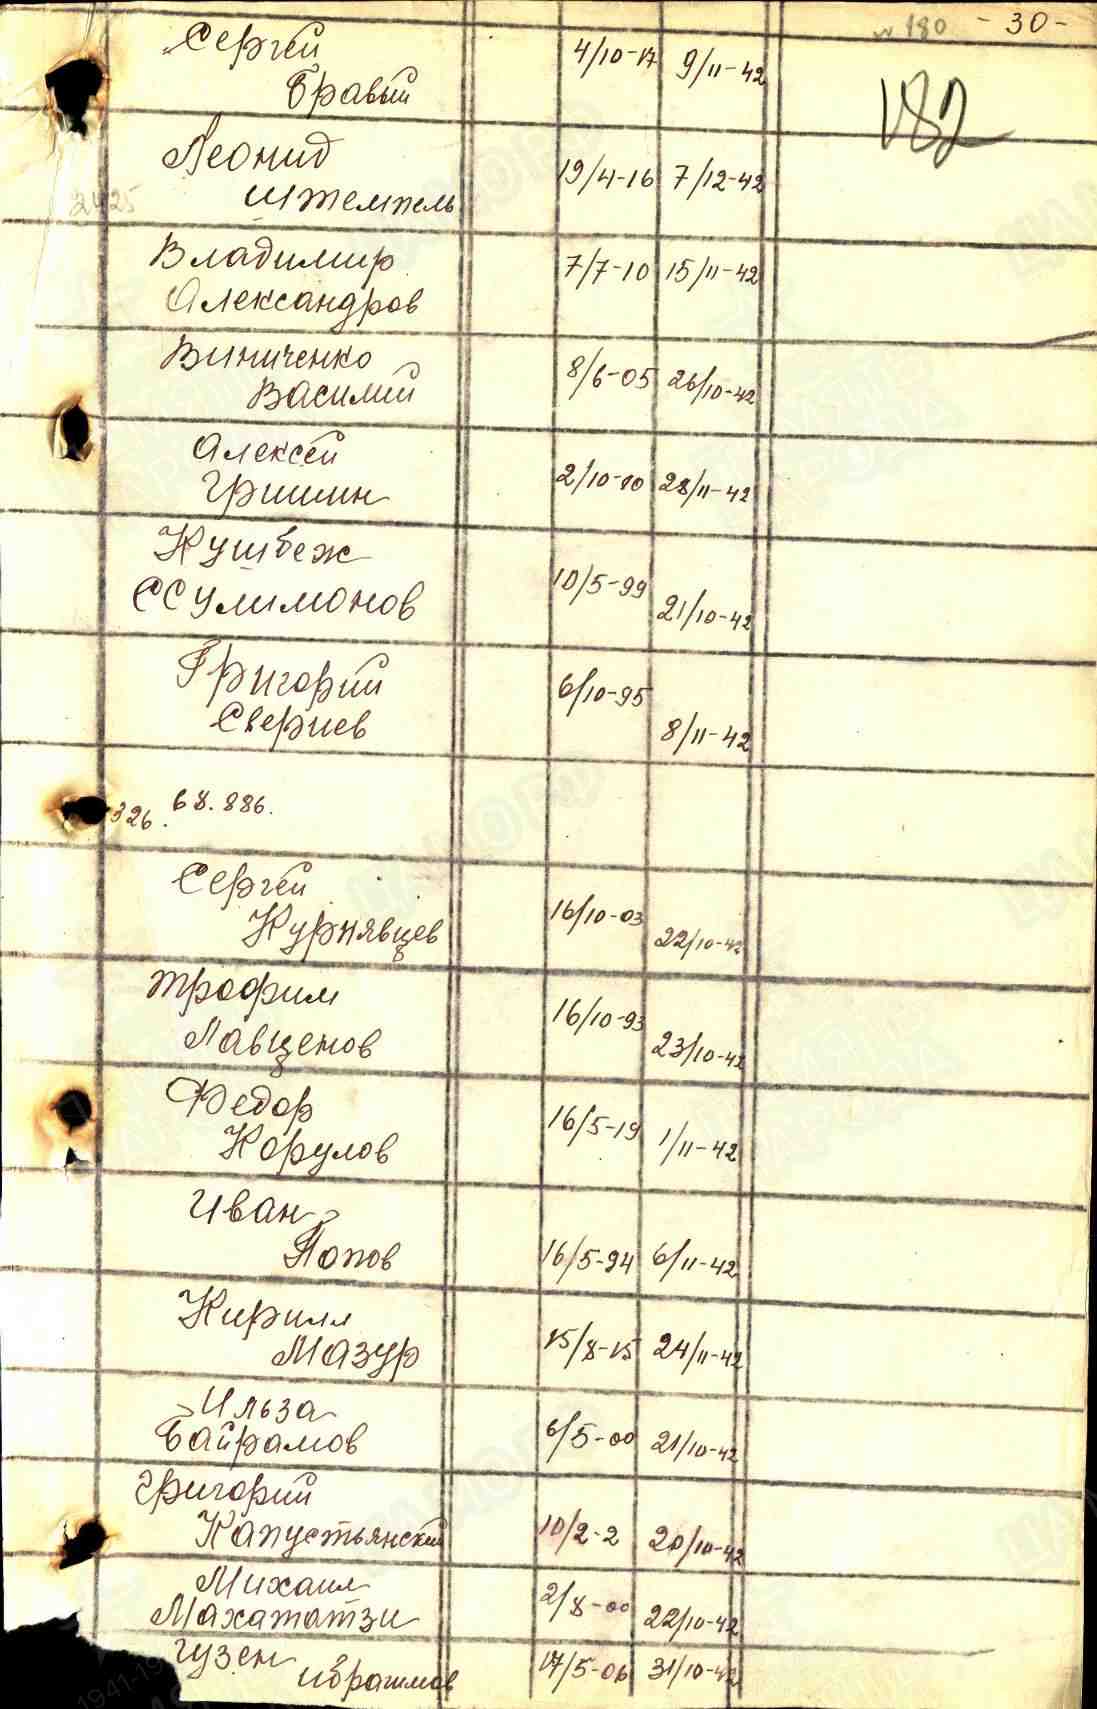 № 180 - 30 -
182
Сергей 4/10-17 9/11-42
Бравый
Леонид 19/4-16 7/12-42
Штемпель
2425
Владимир 7/7-10 15/11-42
Александров
Виниченко 8/6-05 26/10-42
Василий
Алексей 2/10-10 28/11-42
Гришин
Кушбеж 10/5-99 21/10-42
ССулимонов
Григорий 6/10-95 8/11-42
Свериев
326. 68.886.
Сергей 16/10-03 22/10-42
Курнявцев
Трофим 16/10-93 23/10-42
Лавценов
Федор 16/5-19 1/11-42
Корулов
Иван 16/5-94 6/11-42
Попов
Кирилл 15/8-15 24/11-42
Мазур
Ильза 6/5-00 21/10-42
Байрамов
Григорий 10/2-2 20/10-42
Капустьянский
Михаил 2/8-00 22/10-42
Махататзи
Гузен 17/5-06 31/10-42
Ибрагимов